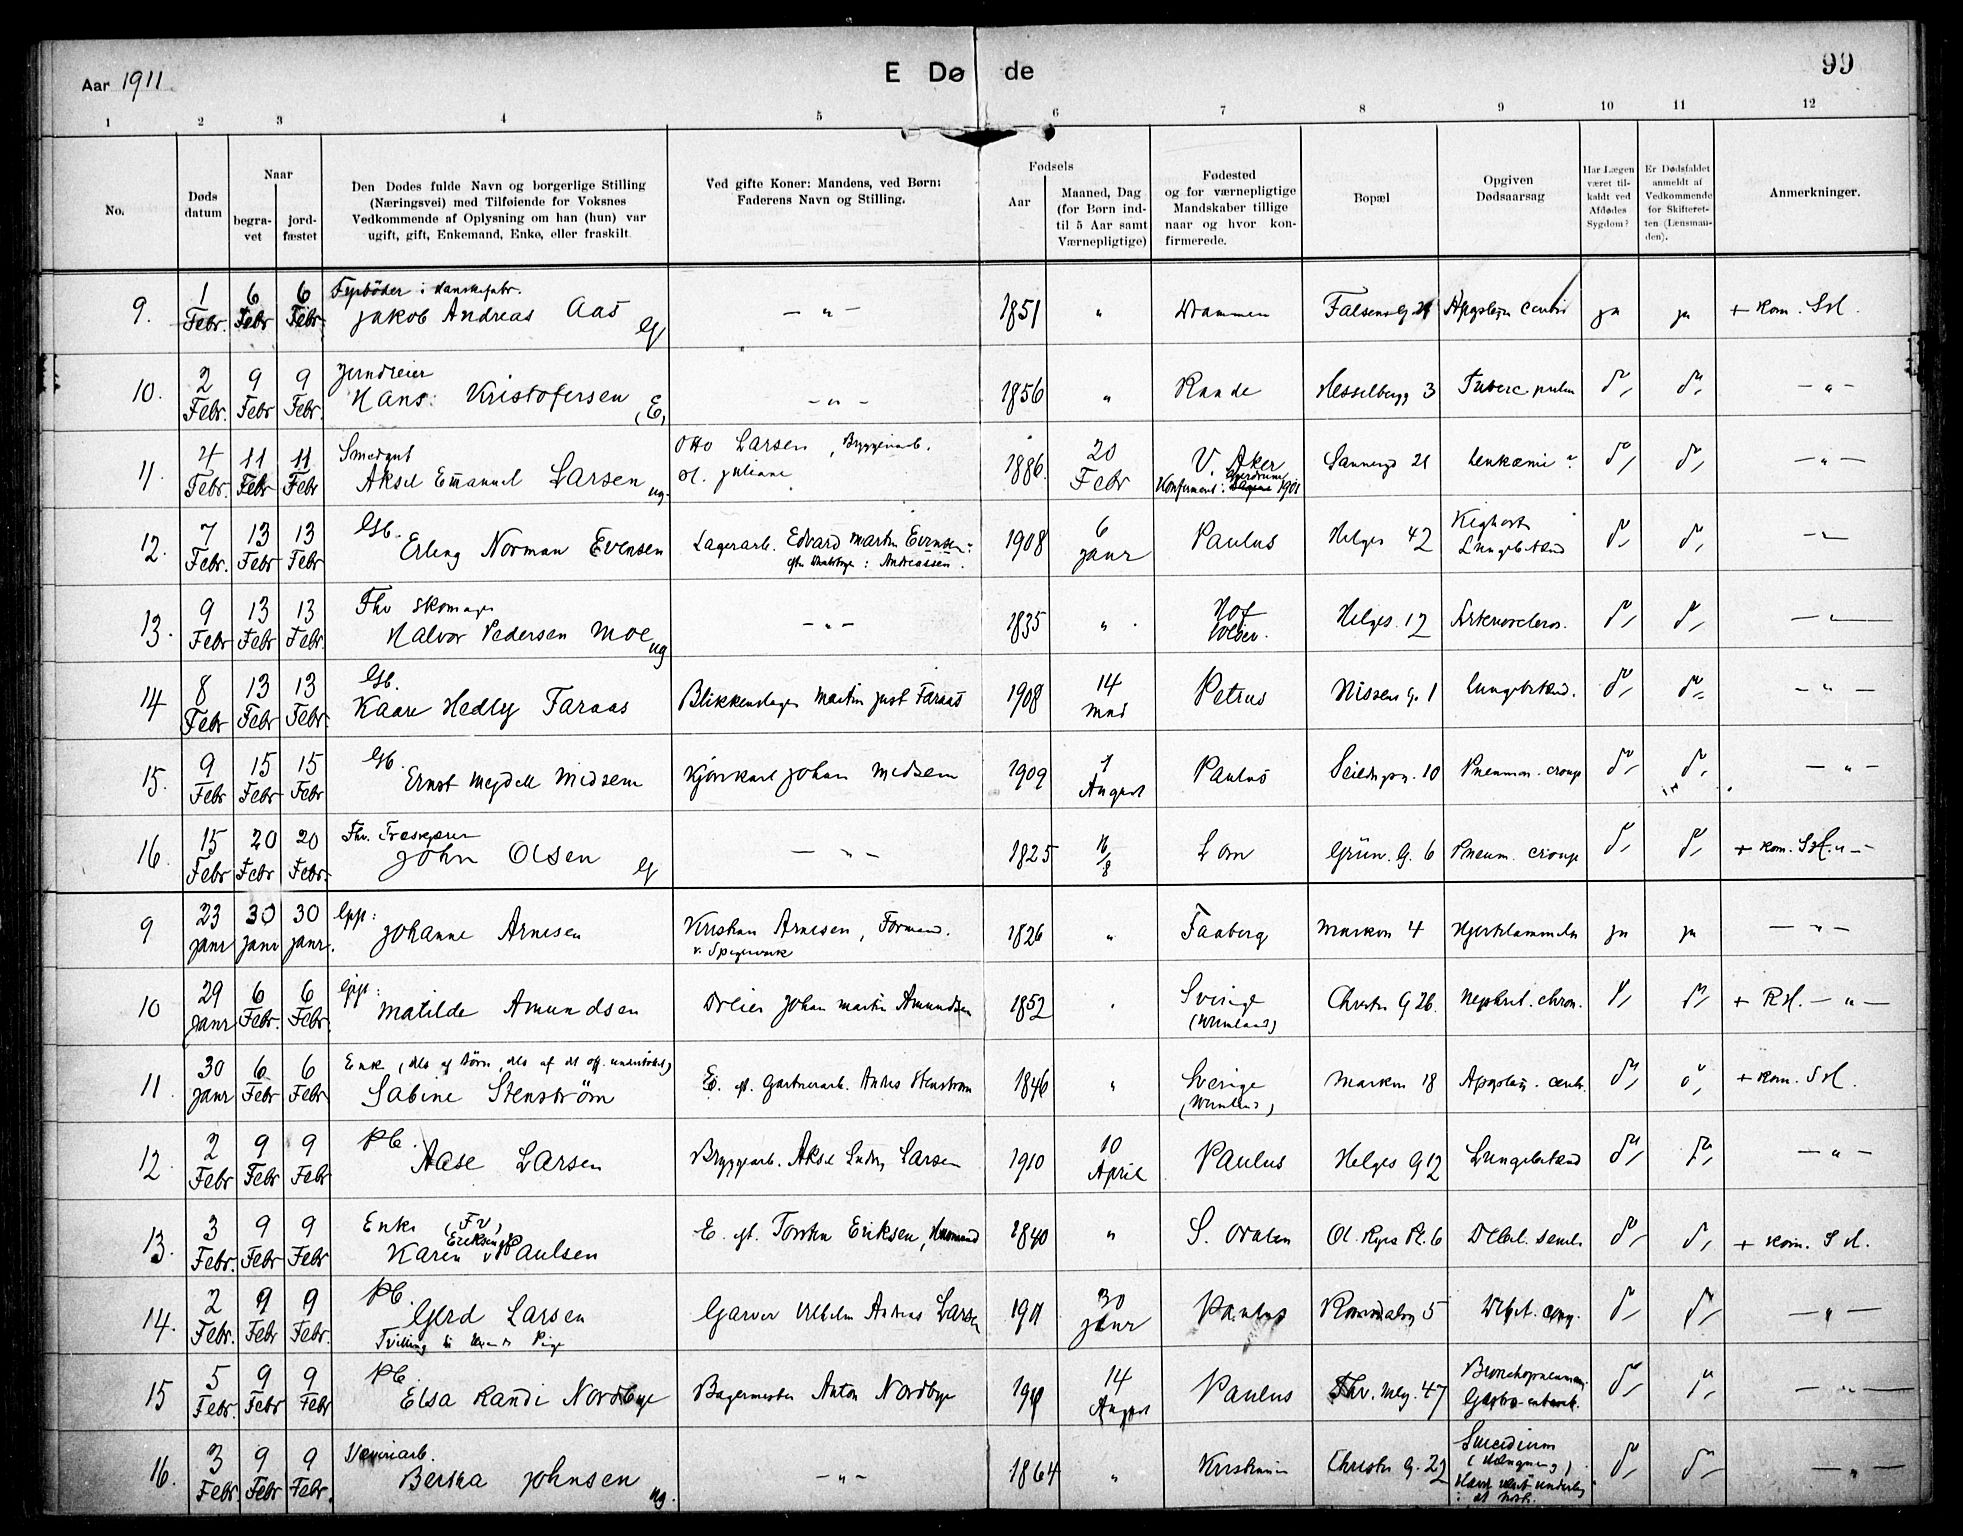 Aar 1911
E Døde
99
1 2 3 4 5 6 7 8 9 10 11 12
No.
Døds datum
Naar
begra-vet
jord-fæstet
Den Dødes fulde Navn og borgerlige Stilling
(Næringsvei) med Tilføiende for Voksnes
Vedkommende af Oplysning om han (hun) var
ugift, gift, Enkemand, Enke, eller fraskilt.
Ved gifte Koner: Mandens, ved Børn:
Faderens Navn og Stilling.
Fødsels
Aar
Maaned, Dag
(for Børn ind-
til 5 Aar samt
Værnepligtige)
Fødested
og for værnepligtige
Mandskaber tillige
naar og hvor kon-
firmerede.
Bopæl
Opgiven
Dødsaarsag
Har Lægen
været til-
kaldt ved
Afdødes
Sygdom?
Er Dødsfaldet
anmeldt af
Vedkommende
for Skifteret-
ten (Lensman-
den).
Anmerkninger.
Fyrbøder i
9. 1 Febr. 6 Febr 6 Febr. Jakob Andreas Aas G — " — 1851 " Drammen Apopleg ja ja + kom. S.H.
10. 2 Febr. 9 Febr 9 Febr. Hans Kristofersen E. — " — 1856 " Raade Hesselbergg 3 Tuberc pulm do do — " —
Smedgut
Otto Larsen, Bryggeriarb.
11. 4 Febr. 11 Febr 11 Febr Aksel Emanuel Larsen ug. Juliane 1886 20 Febr V. Aker Sannergd 21 Leukæmi do do — " —
Konfirmeret: 1901
Gb.
12. 7 Febr. 13 Febr 13 Febr Erling Norman Evensen Lagerarb. Edvard Martin Evensen 1908 6 Janr Paulus Helges 42 Kighoste Lungebetænd do do — " —
Andreassen.
Fhv Skomager
13. 9 Febr 13 Febr 13 Febr. Halvor Pedersen Moe ug — " — 1835 " Hof Solør. Helges. 12 do do — " —
Gb.
14 8 Febr 13 Febr 13 Febr. Kaare Hedly Faraas Blikkenslager Martin Just Faraas 1908 14 Petrus Nissens G. 1 Lungebetænd. do do — " —
Gb.
15. 9 Febr 15 Febr 15 Febr Ernst Medsem Johan Medsem 1909 1 August Paulus 10 Pneumon. croup do do — " —
Fhv.
16. 15 Febr 20 Febr 20 Febr. John Olsen G — " — 1825 16/8 Lom Grün. G. 6 Pneum. croup do do + kom. S.H. — " —
Gift:
9 23 Janr 30 Janr 30 Janr. Johanne Arnesen Kristian Arnesen, Formand. 1826 " Faaberg Markvn 4 ja ja — " —
v. Spigerverk
Gift:
10 29 Janr 6 Febr. 6 Febr. Matilde Amundsen Dreier Johan Martin Amundsen 1852 Sverige (Wermland) Christies G 26. Nephrit. chron. do do + R.H. — " —
Enke
11. 30 Janr 6 Febr 6 Febr Sabine Stenström E. ef. Gartnerarb. Anders Stenström 1846 " Sverige (Wermland) Markvn 18 Apopleg. cereb. do do + kom. S.H.
Pb.
12. 2 Febr 9 Febr 9 Febr Aase Larsen Bryggearb. Aksel Ludvig Larsen 1910 10 April Paulus Helges G 12 Lungebetænd do do — " —
Enke (Fv)
13. 3 Febr. 9 Febr 9 Febr Karen Eriksen Paulsen E. ef. Torsten Eriksen, 1840 " S. Odalen Ol. Ryes Pl. 6 Debil. senil. do do + kom. S.H.
Pb.
14. 2 Febr. 9 Febr 9 Febr. Gerd Larsen Garver Vilhelm Andreas Larsen 1911 30 Janr Paulus Romsdalsg 5 Debil. cong. do do — " —
Tvilling
Pb.
15 5 Febr. 9 Febr 9 Febr Elsa Randi Nordbye Bagermester Anton Nordbye 1910 14 August Paulus Thv. Meg. 47 Bronchopneumoni do do — " —
Væveriarb.
16. 3 Febr. 9 Febr 9 Febr. Berta Johnsen ug. — " — 1864 " Kristiania Christies G. 22 Suicidium (Hængning) do do — " —
Havde været underlig